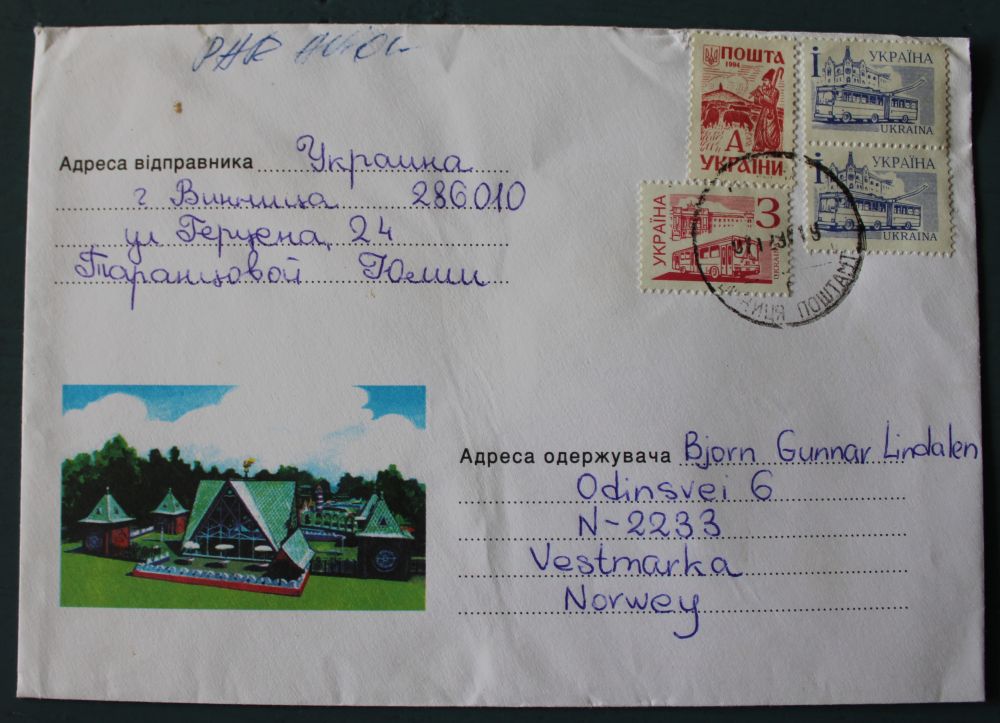 PAR AVION
Адреса відправника Украина
г Винница 286010
ул Герцена, 24
Таранцовой Юлии
ПОШТА
1994
А
УКРАЇНИ
і УКРАЇНА
UKRAINA
УКРАЇНА
З
UKRAINA
і УКРАЇНА
UKRAINA
ПОШТАМТ
Адреса одержувача Bjorn Gunnar Lindalen
Odinsvei 6
N-2233
Vestmarka
Norwey